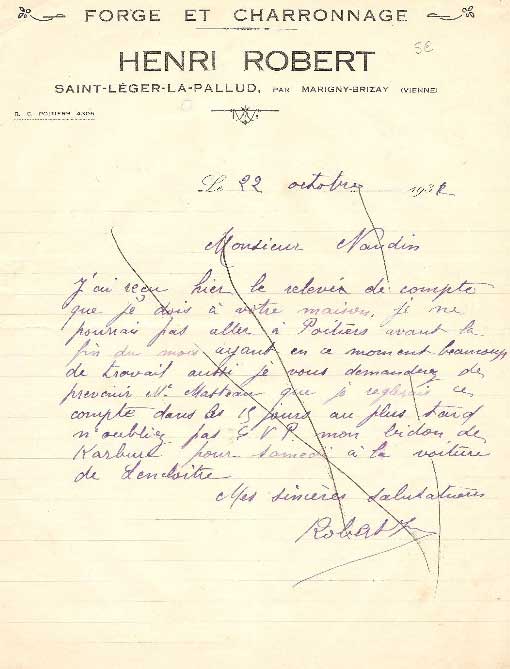 FORGE ET CHARRONNAGE
5€
HENRI ROBERT
SAINT-LÉGER-LA-PALLUD, PAR MARIGNY-BRIZAY (VIENNE)
R. C. POITIERS A.306
Le 22 octobre 1932
Monsieur Naudin
J'ai reçu hier le relevée de compte
que je dois à votre maison, je ne
pourrai pas aller à Poitiers avant la
fin du mois ayant en ce moment beaucoup
de travail aussi je vous demanderez de
prevenir Mr que je reglerais ce
compte dans les 15 jours au plus tard
n'oubliez pas S V P mon bidon de
Karbure pour samedi à la voiture
de Lencloitre
Mes sincères salutations
Robert